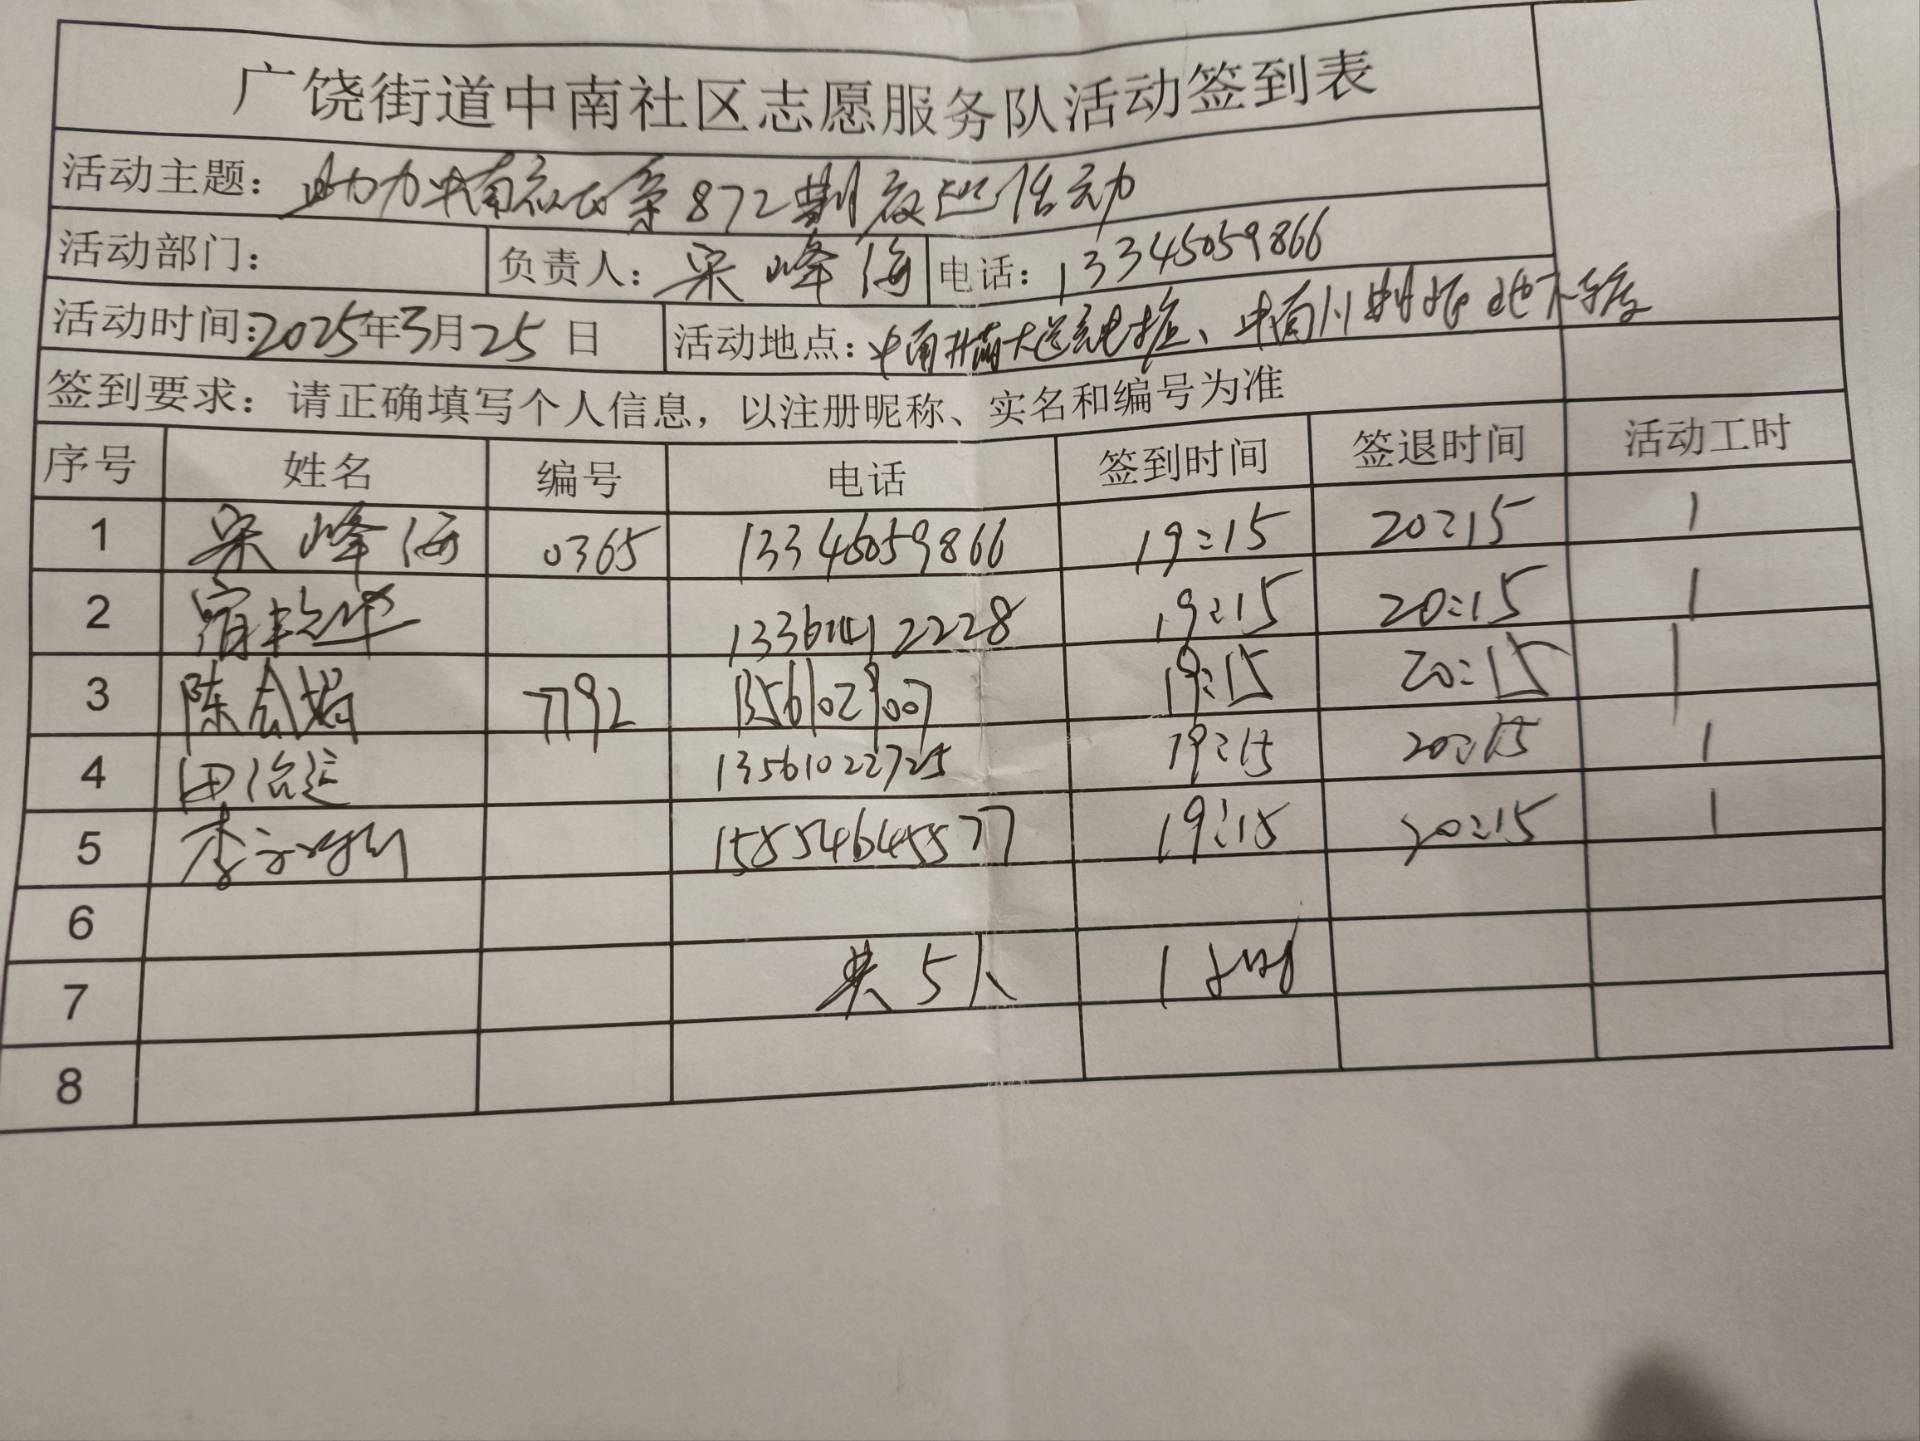 广饶街道中南社区志愿服务队活动签到表
活动主题：助力中南社区第872期夜巡活动
活动部门： 负责人：宋峰海 电话：13345059866
活动时间：2025年3月25日 活动地点：中南
签到要求：请正确填写个人信息，以注册昵称、实名和编号为准
序号 姓名 编号 电话 签到时间 签退时间 活动工时
1 宋峰海 0365 13345059866 19:15 20:15 1
2 19:15 20:15 1
3 陈 7792 13561029007 19:15 20:15 1
4 田治运 13561022725 19:15 20:15 1
5 李 19:15 20:15 1
6
7 共5人 1小时
8